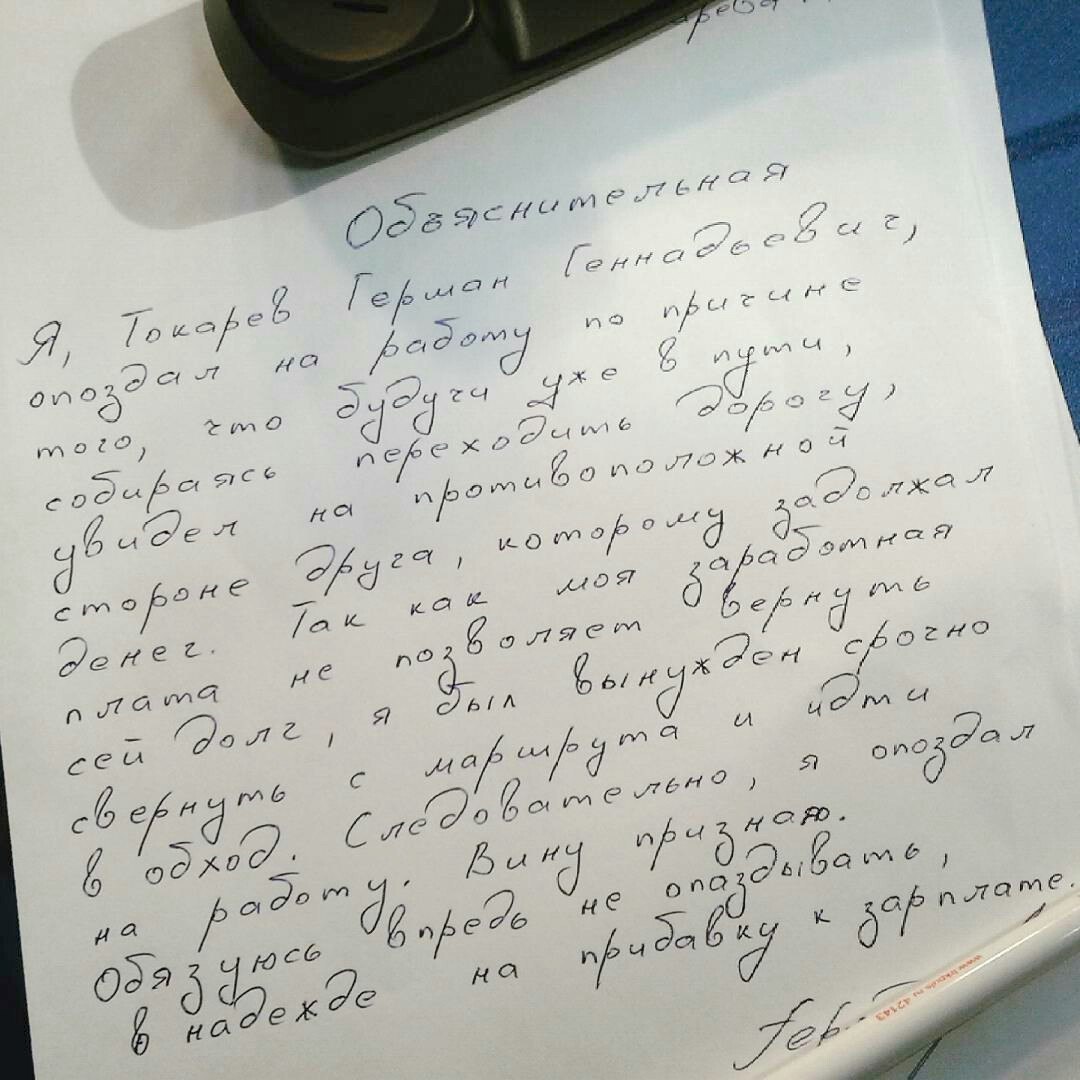 Объяснительная
Я, Токарев Герман Геннадьевич,
опоздал на работу по причине
того, что будучи уже в пути,
собираясь переходить дорогу,
увидел на противоположной
стороне друга, которому задолжал
денег. Так как моя заработная
плата не позволяет вернуть
сей долг, я был вынужден срочно
свернуть с маршрута и идти
в обход. Следовательно, я опоздал
на работу. Вину признаю.
Обязуюсь впредь не опаздывать,
в надежде на прибавку к зарплате.
42143